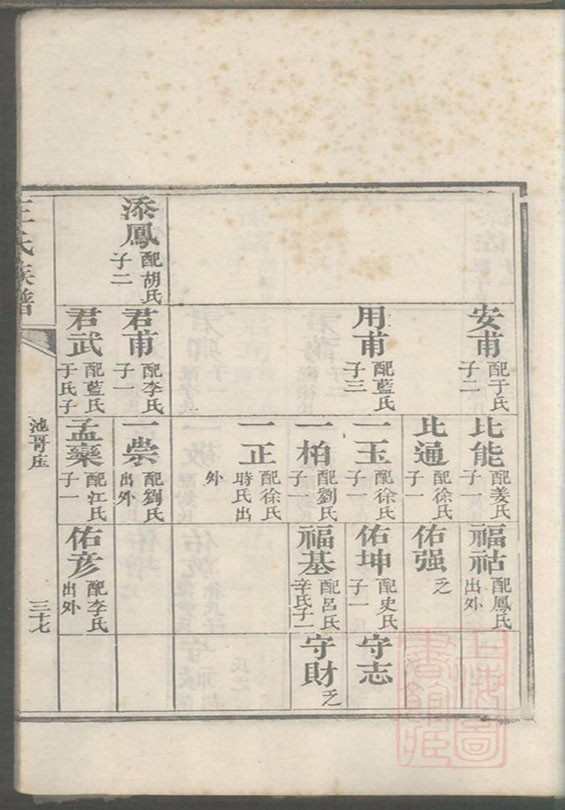 安甫 配于氏 子二
比能 配姜氏 子一
福祜 配鳳氏 出外
比通 配徐氏 子一
佑强 乏
用甫 配藍氏 子三
一玉 配徐氏 子一
佑坤 配史氏 子一
守志
一柏 配劉氏 子一
福基 配呂氏 辛氏子二
守財 乏
一正 配徐氏 時氏出外
添鳳 配胡氏 子二
君甫 配李氏 子一
一崇 配劉氏 出外
君武 配藍氏 于氏子一
孟藥 配江氏 子一
佑彥 配李氏 出外
王氏族譜
池哥庄
三十七